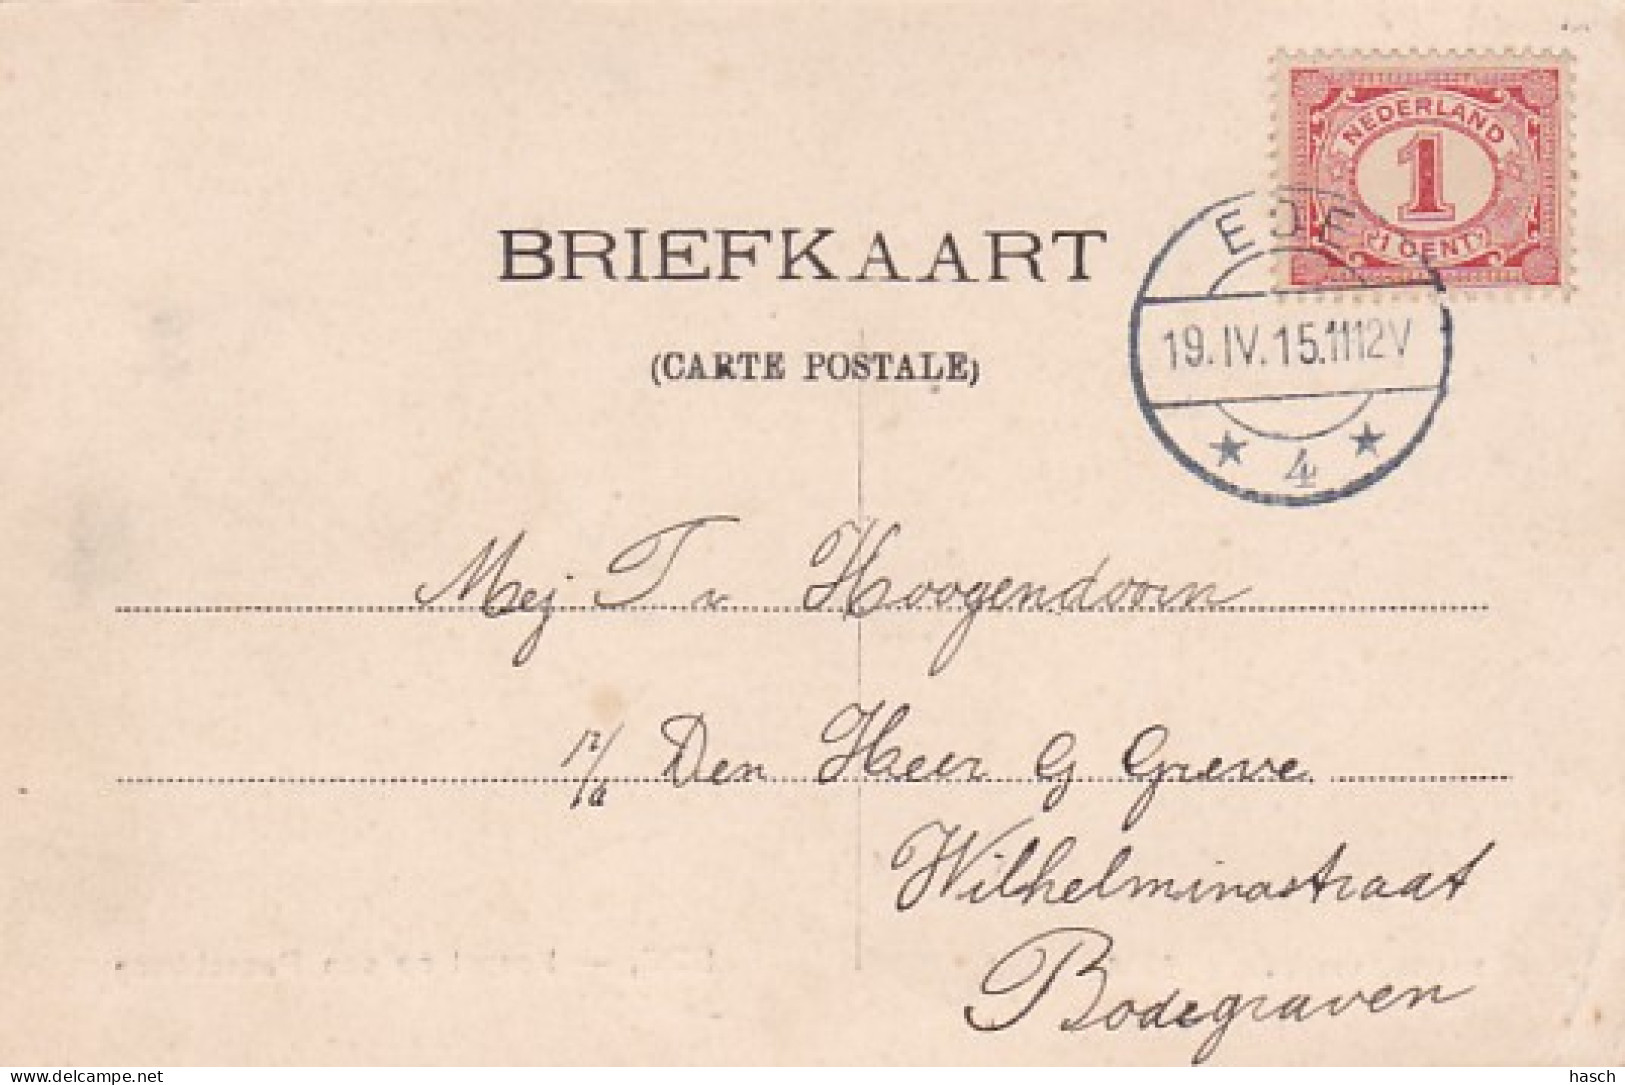 NEDERLAND
1
1 CENT
EDE
19.IV.15.1112V
4
BRIEFKAART
(CARTE POSTALE)
Mej T v Hoogendoorn
p/a Den Heer G Greve
Wilhelminastraat
Bodegraven
www.delcampe.net
hasch